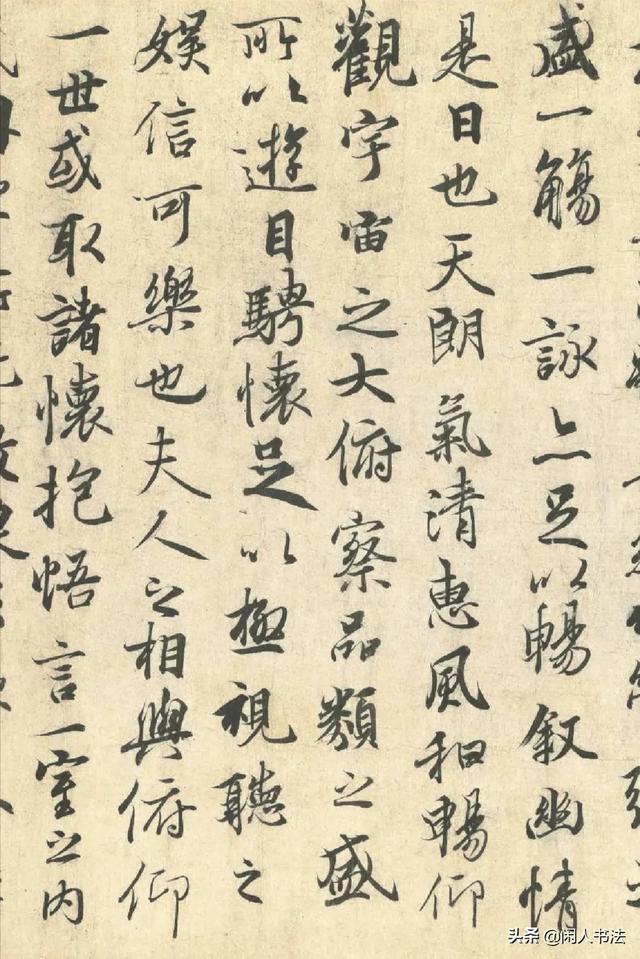 盛一觴一詠亦足以暢敘幽情
是日也天朗氣清惠風和暢仰
觀宇宙之大俯察品類之盛
所以遊目騁懷足以極視聽之
娛信可樂也夫人之相與俯仰
一世或取諸懷抱悟言一室之內
头条 @闲人书法